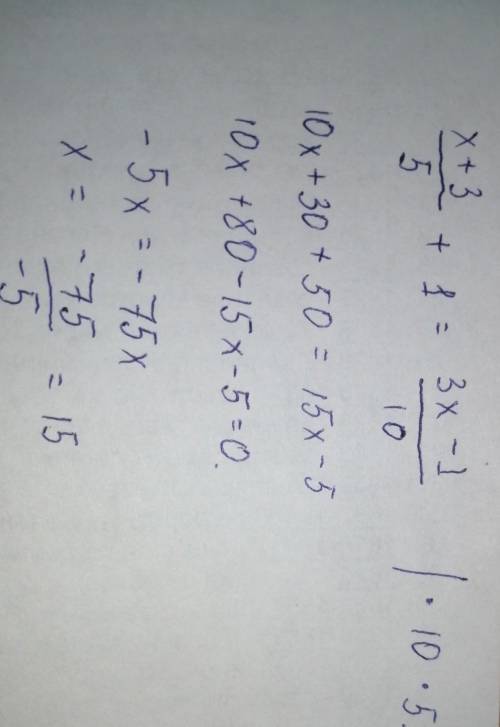 x+3/5 + 1 = 3x-1/10 | · 10 · 5
10x + 30 + 50 = 15x - 5
10x + 80 - 15x - 5 = 0.
- 5x = - 75x
x = -75/-5 = 15